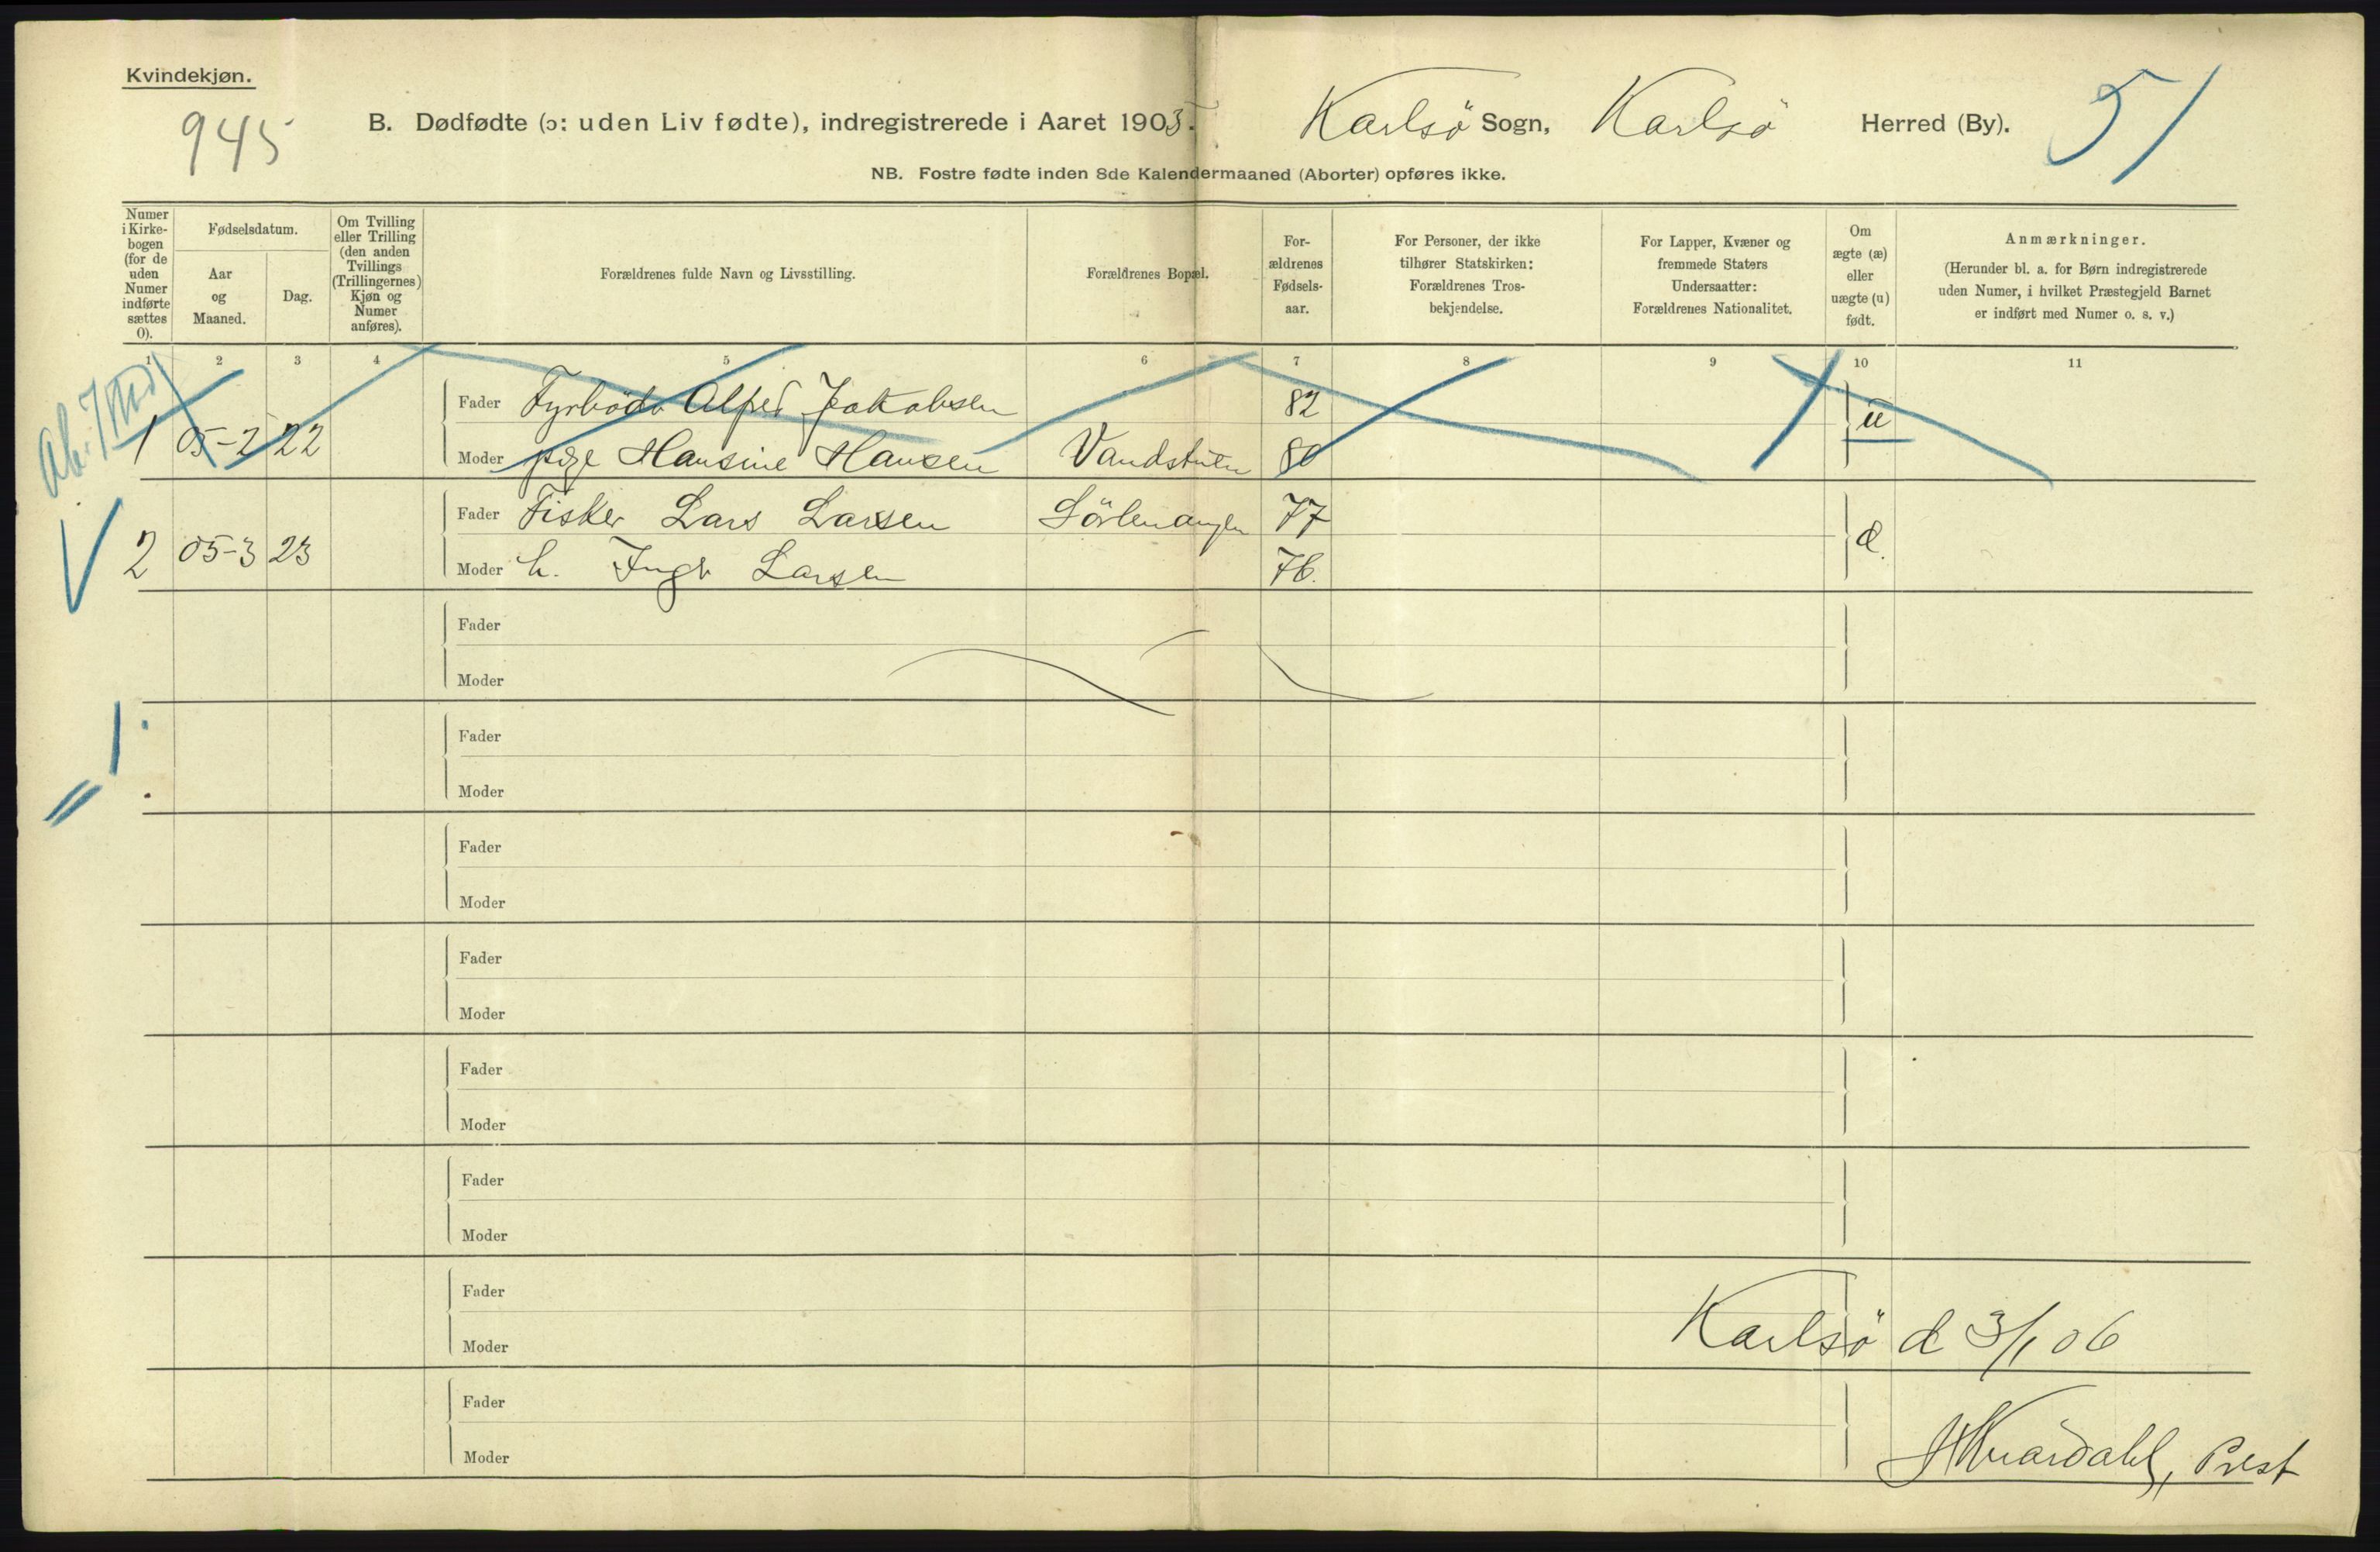 Kvindekjøn.
945
B. Dødfødte (ɔ: uden Liv fødte), indregistrerede i Aaret 1905. Karlsö Sogn, Karlsö Herred (By).
51
NB. Fostre fødte inden 8de Kalendermaaned (Aborter) opføres ikke.
Numer i Kirke-bogen (for de uden Numer indførte sættes 0).
Fødselsdatum.
Aar og Maaned.
Dag.
Om Tvilling eller Trilling (den anden Tvillings (Trillingernes) Kjøn og Numer anføres).
Forældrenes fulde Navn og Livsstilling.
Forældrenes Bopæl.
For-ældrenes Fødsels-aar.
For Personer, der ikke tilhører Statskirken: Forældrenes Tros-bekjendelse.
For Lapper, Kvæner og fremmede Staters Undersaatter: Forældrenes Nationalitet.
Om ægte (æ) eller uægte (u) født.
Anmærkninger.
(Herunder bl. a. for Børn indregistrerede uden Numer, i hvilket Præstegjeld Barnet er indført med Numer o. s. v.)
1 2 3 4 5 6 7 8 9 10 11
Ab. 7 Md
Fader Fyrbøder Alfred Jakobsen 82
1 05-2 22 u
Moder pige Hansine Hansen Vandstuen 80
Fader Fisker Lars Larsen Sörlenangen 77
2 05-3 23 æ.
Moder h. Inga Larsen 76.
Fader
Moder
1
Fader
Moder
Fader
Moder
Fader
Moder
Fader
Moder
Fader
Moder
Fader
Moder
Karlsö d 3/1 06
Fader
Moder
Kvardahl, Prest